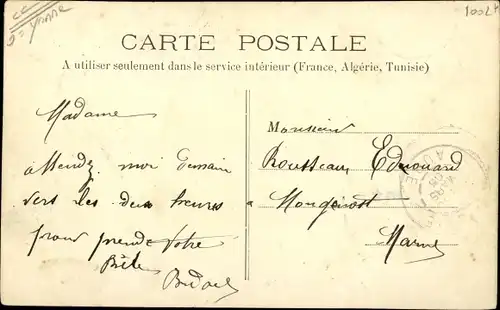 CARTE POSTALE
A utiliser seulement dans le service intérieur (France, Algérie, Tunisie)
Madame
attendez moi demain
vers les deux heures
pour prendre votre
Bête
Monsieur
Rousseau Edouard
à
Marne